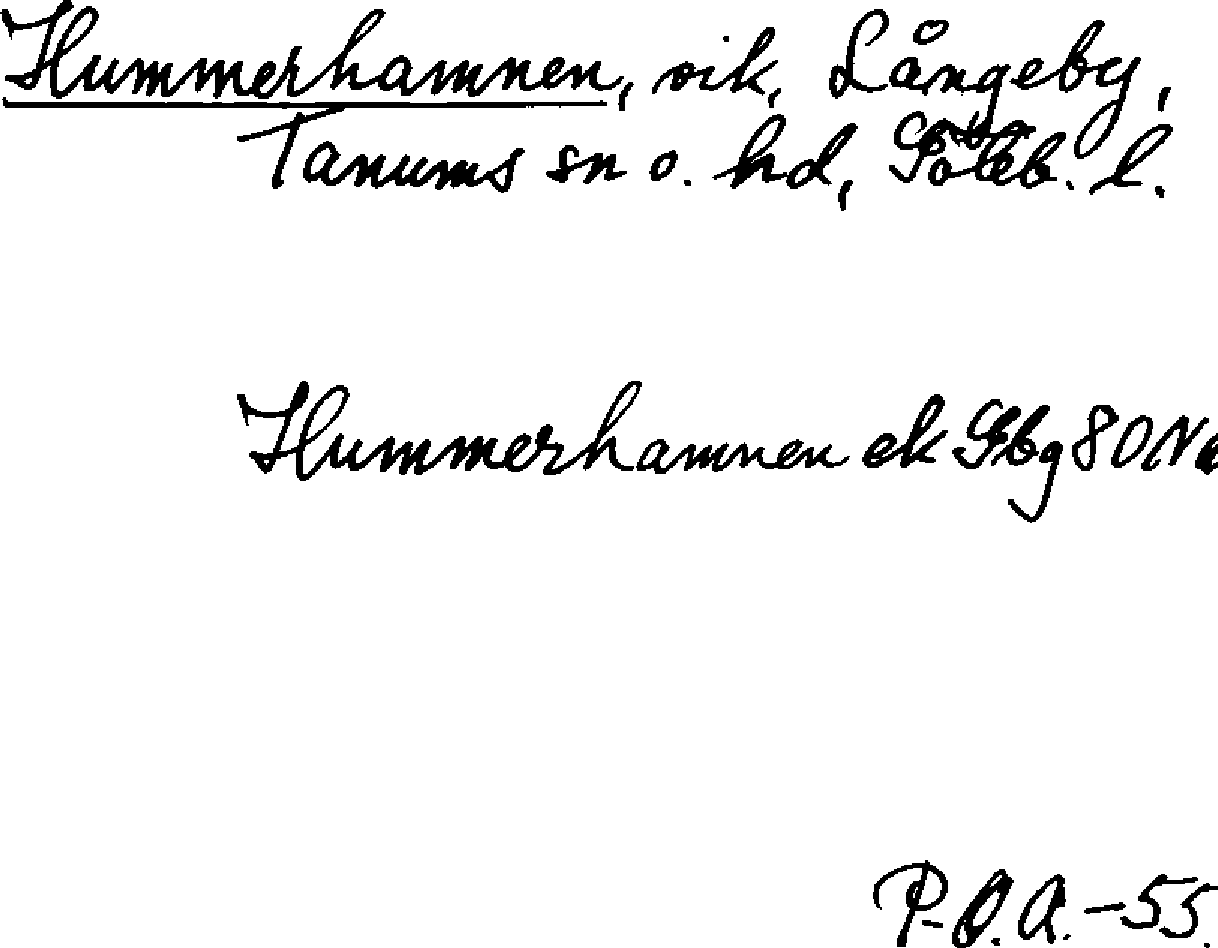 Hummerhamnen, vik, Långeby,
Tanums sn o. hd, Göteb. l.
Hummerhamnen ek Gbg 80 Nö
P-O.A.-55.